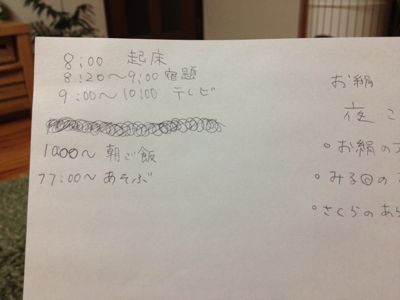 8:00 起床
8:20～9:00 宿題
9:00～10:00 テレビ
1000～ 朝ご飯
11:00～ あそぶ
お絹
夜こ
・お絹の
・みる◎の
・さくらのあ